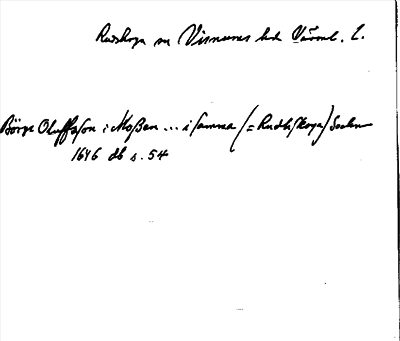 Rudskoga sn Visnums hd Värml. l.
Börge Oluffsson i Moßen ... i samma (= Rudskoga) Sochn
1646 db s. 54